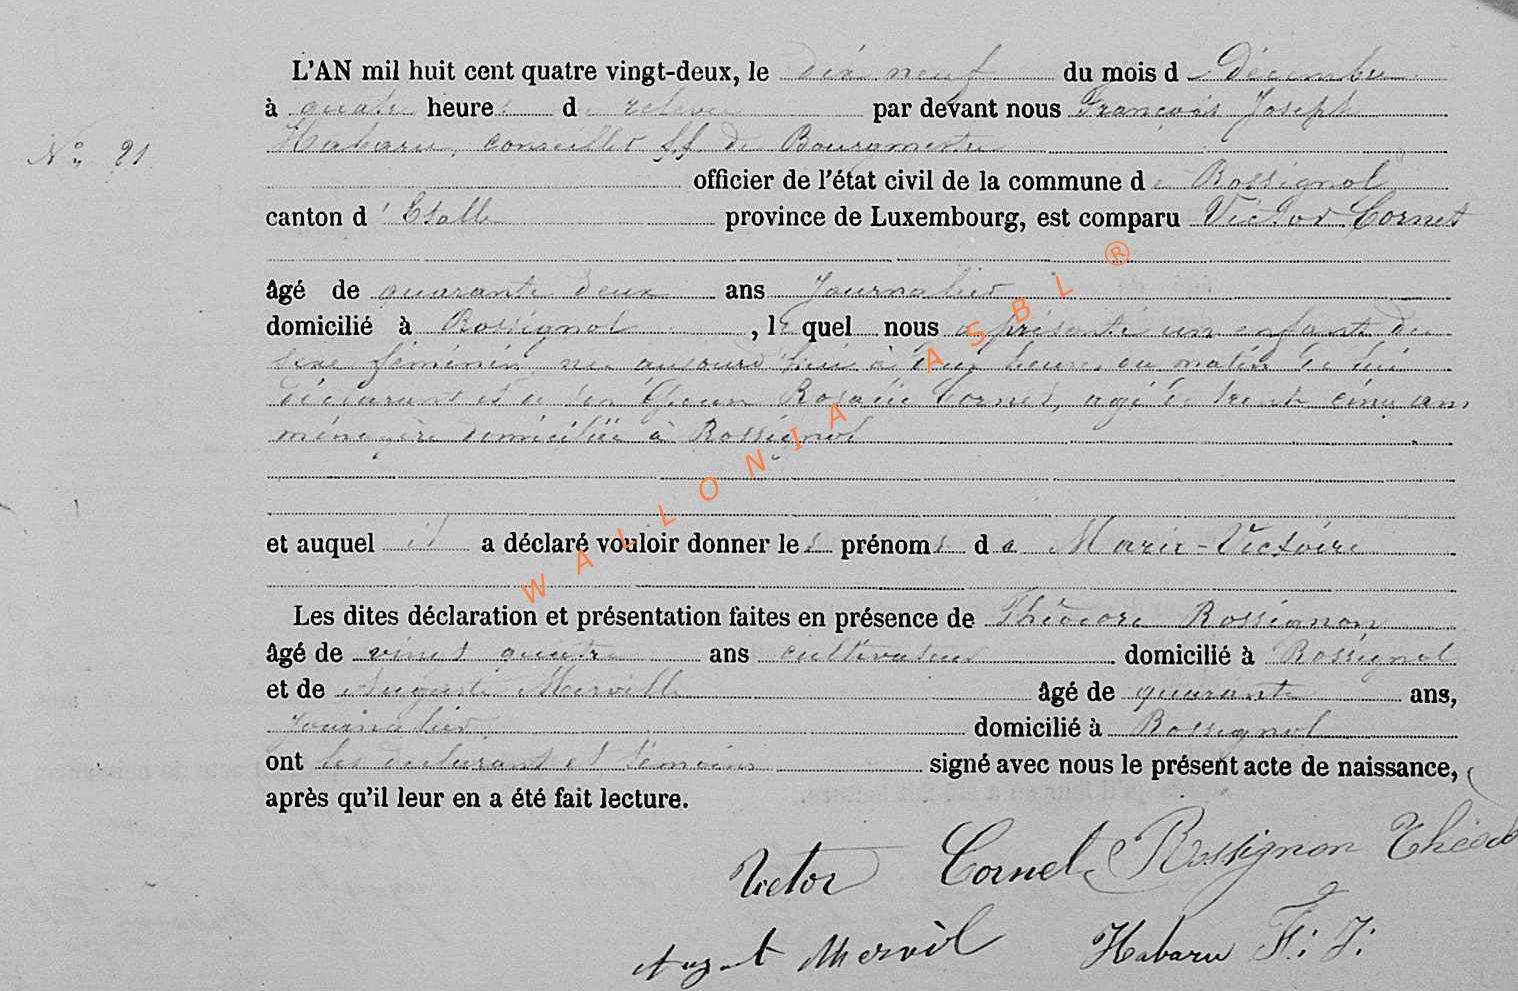 L'AN mil huit cent quatre vingt-deux, le dix neuf du mois de Décembre
à quatre heures de relevée par devant nous François Joseph
N° 21
Habaru, conseiller ff. de Bourgmestre
officier de l'état civil de la commune de Rossignol
canton d'Etalle province de Luxembourg, est comparu Victor Cornet
âgé de quarante deux ans Journalier
domicilié à Rossignol, le quel nous a présenté un enfant du
sexe féminin, né aujourd'hui à deux heures du matin de lui
déclarant et de son épouse Rosalie Cornet, agé de trente cinq ans
ménagère domiciliée à Rossignol
et auquel il a déclaré vouloir donner les prénoms de Marie-Victoire
Les dites déclaration et présentation faites en présence de Théodore Rossignon
âgé de vingt quatre ans cultivateur domicilié à Rossignol
et de Auguste Merville âgé de quarante ans,
Journalier domicilié à Rossignol
ont les déclarant et témoins signé avec nous le présent acte de naissance,
après qu'il leur en a été fait lecture.
Victor Cornet Rossignon Théod
August Mervil Habaru F: J:
WALLONIA ASBL ®